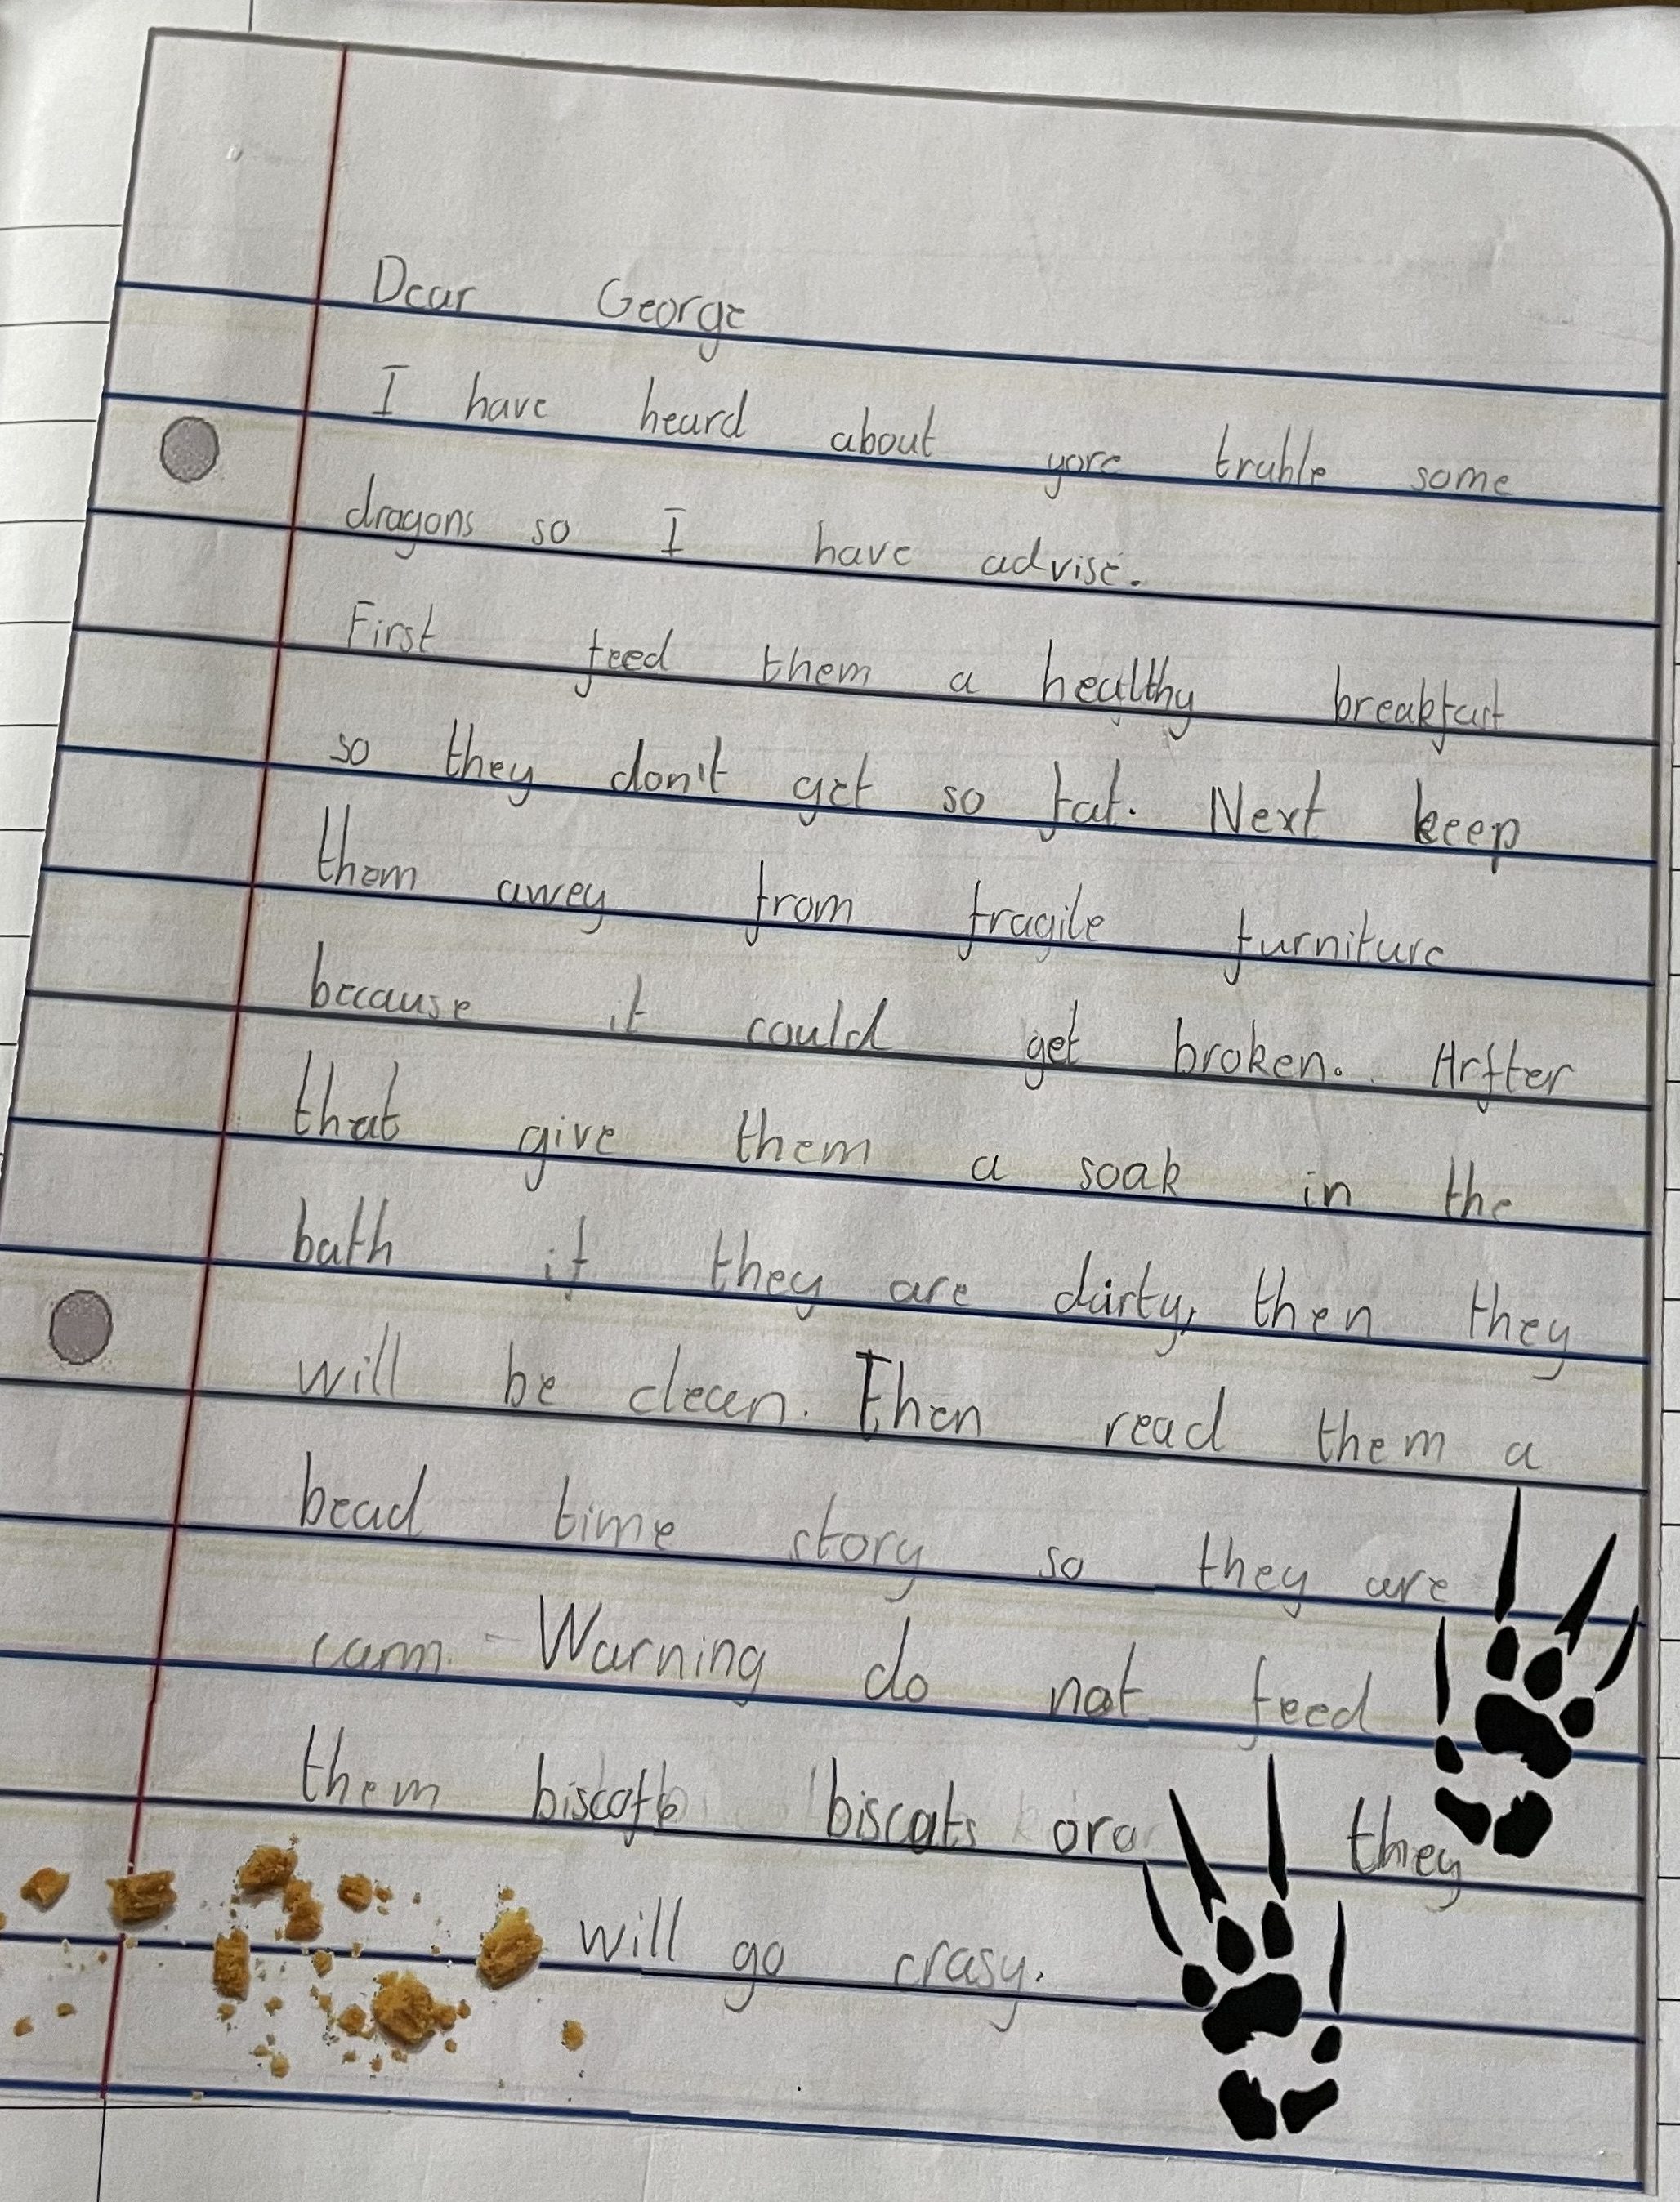 Dear George
I have heard about yore truble some
dragons so I have advise.
First feed them a healthy breakfast
so they don't get so fat. Next keep
them awey from fragile furniture
because it could get broken. Arfter
that give them a soak in the
bath if they are dirty, then they
will be clean. Then read them a
bead time story so they are
carm. Warning do not feed
them biscats ora they
will go crasy.